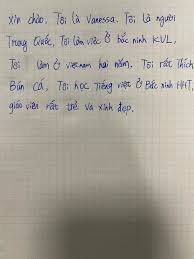 xin chào, Tôi là Vanessa. Tôi là người
Trung Quốc, Tôi làm việc Ở bắc ninh KVL,
Tôi làm ở việt nam hai năm. Tôi rất thích
Bún cá, Tôi học Tiếng việt ở Bắc ninh HHT,
giáo viên rất trẻ và xinh đẹp.